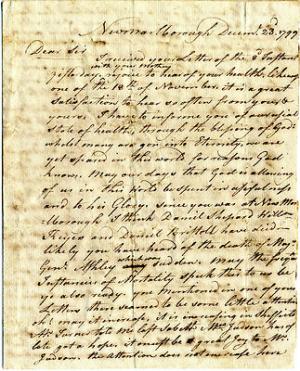 New Marlborough Decem.r 23d. 1799
Dear Sir
I received your Letter of the 3d Instant
with your Mothers
yesterday, rejoice to hear of your health, likewise
one of the 18th of November. it is a great
Satisfaction to hear so often from you &
yours. I have to inform you of our usual
State of health, through the blessing of God
while many are gon into Eternity, we are
yet spared in this world for reasons God
knows. May our days that God is allowing
of us in this world be spent in usefulness
and to his Glory. Since you was at New Marl
borough I think Daniel Shepard Willm
and Daniel have died
likely you have heard of the death of Majr
Genl. Ashley which was sudden. may the foregoing
Instances of Mortality speak this to us be
ye also ready. you mentioned in one of your
Letters there seemed to be some little attention
oh! may it increase, it is increasing in Sheffield
Mr. Turner told me last Sabbath Mrs. Judson has of
late got a hope. it must be a great Joy to Mr.
Judson. the Attention does not increase here